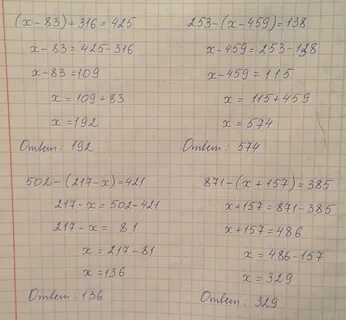 (x-83)+316=425
x-83=425-316
x-83=109
x=109+83
x=192
Ответ: 192
253-(x-459)=138
x-459=253-138
x-459=115
x=115+459
x=574
Ответ: 574
502-(217-x)=421
217-x=502-421
217-x=81
x=217-81
x=136
Ответ: 136
871-(x+157)=385
x+157=871-385
x+157=486
x=486-157
x=329
Ответ: 329